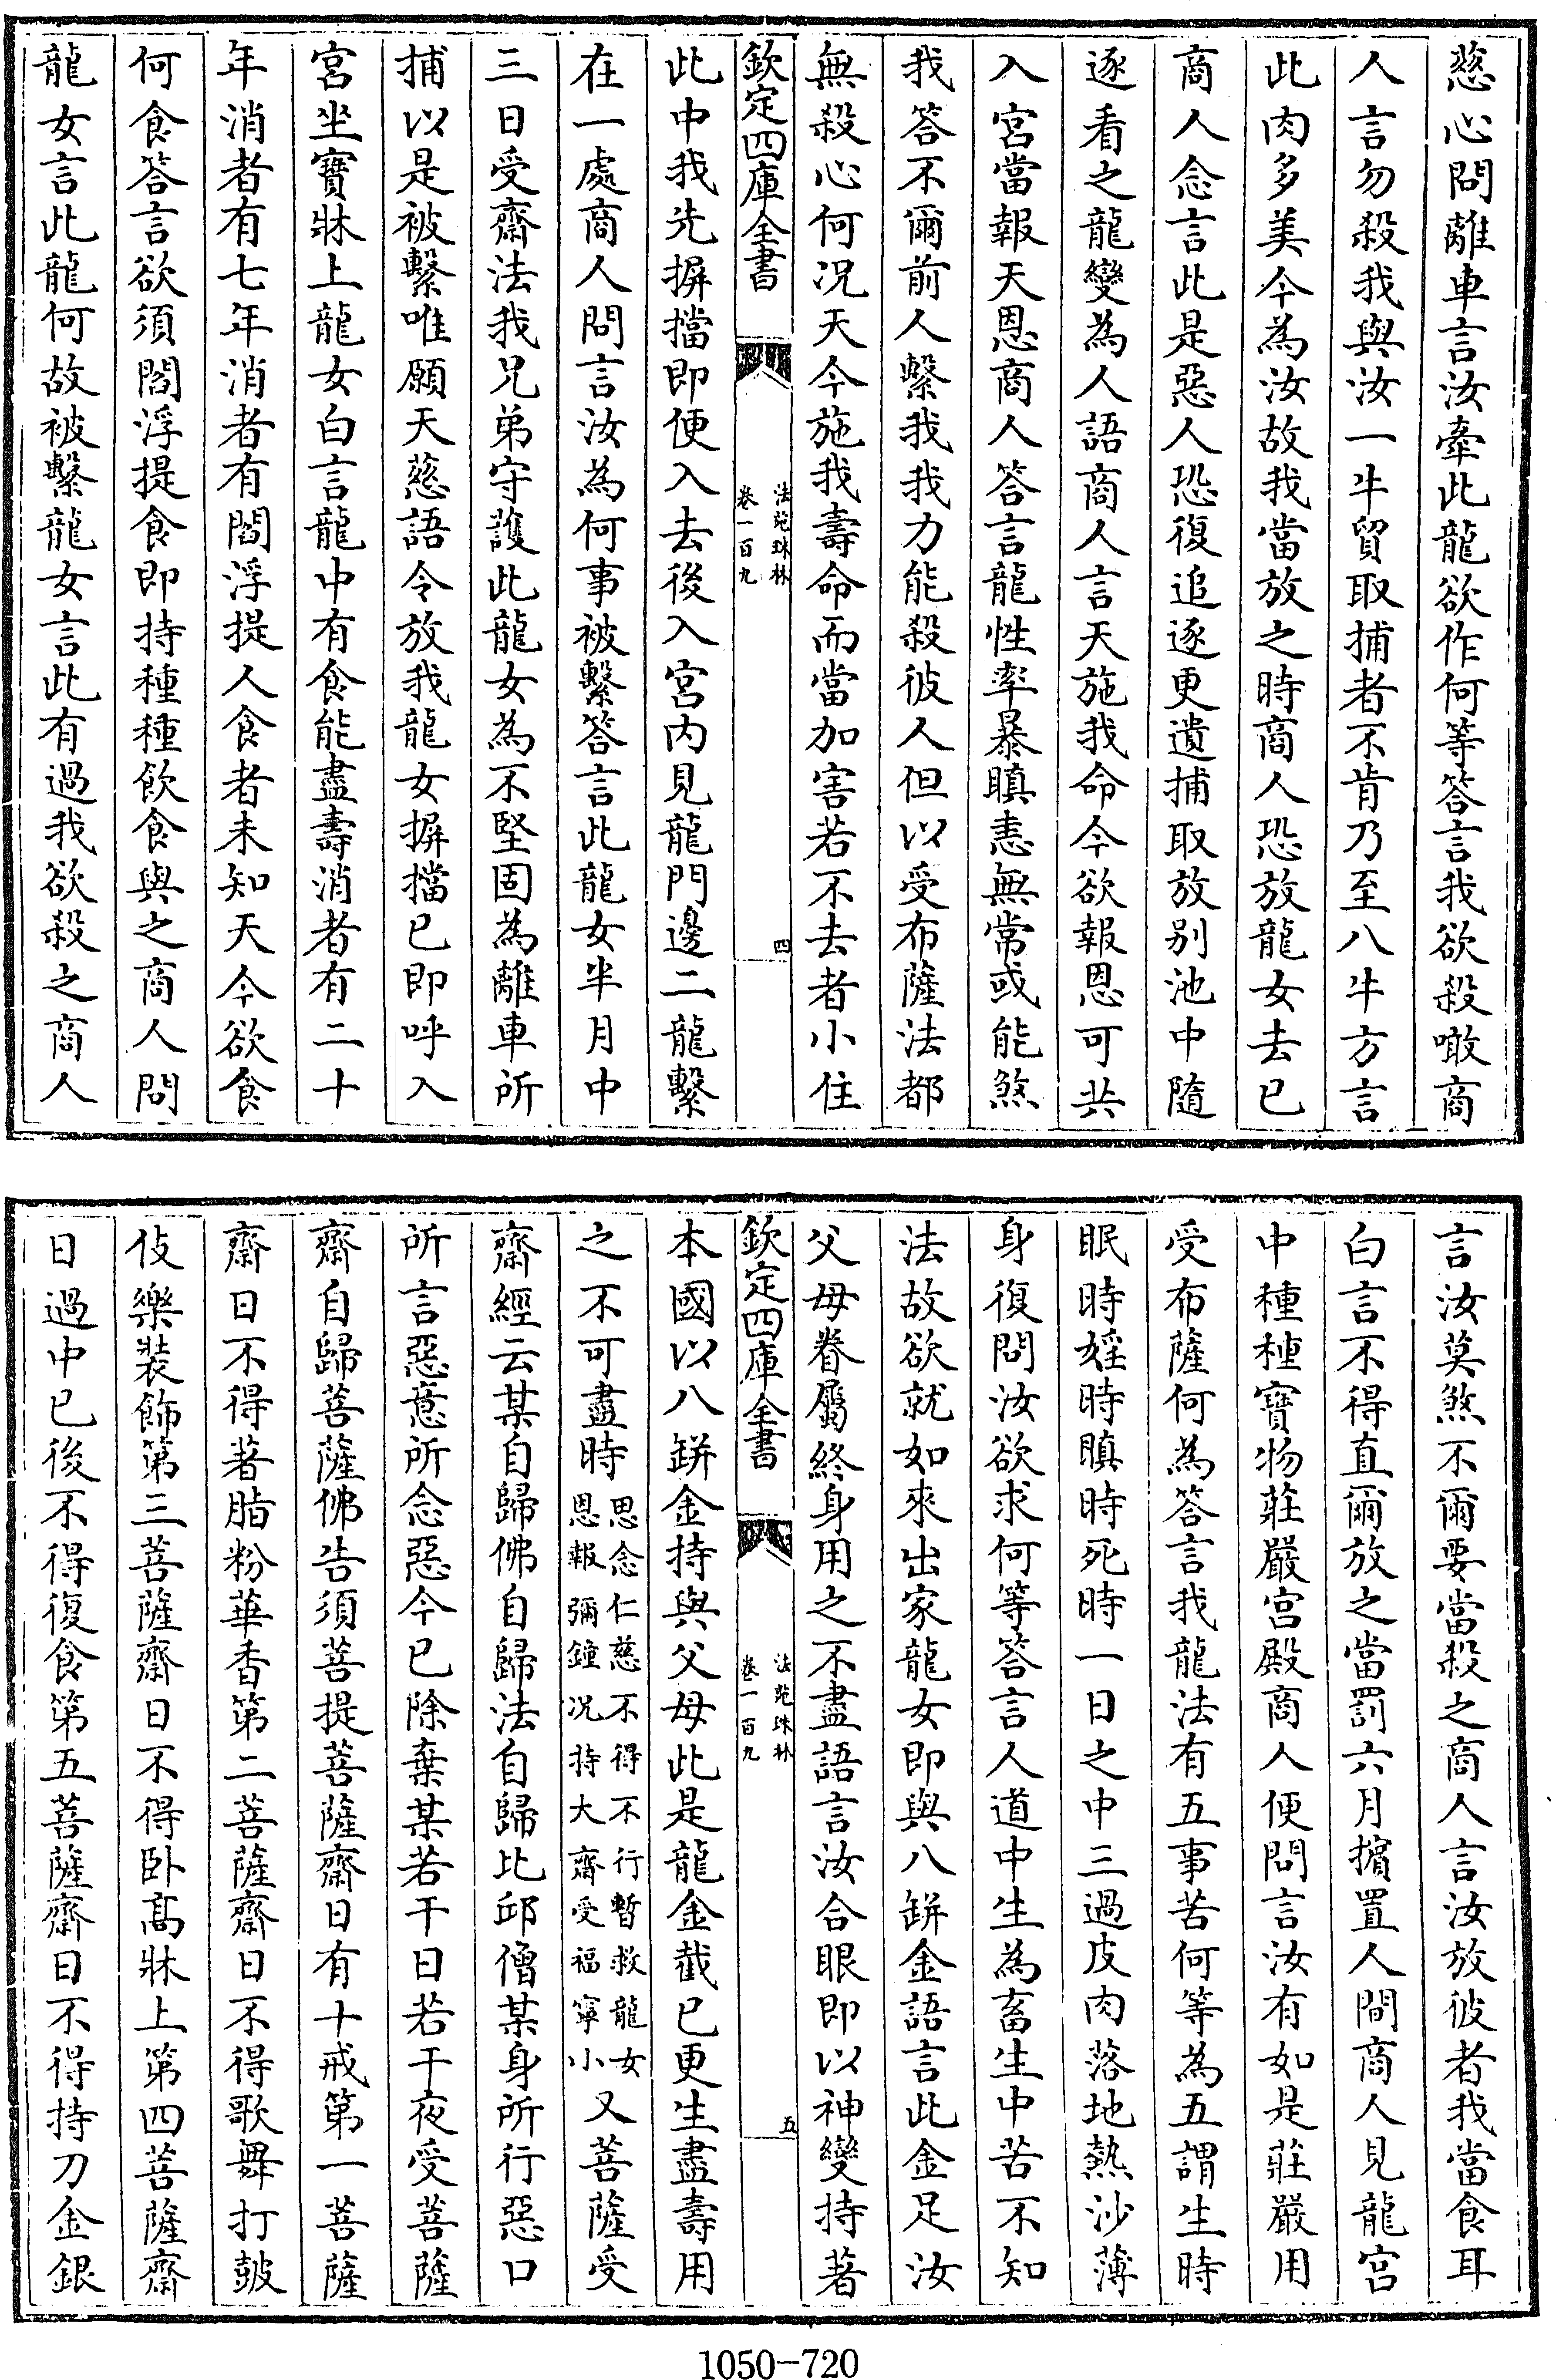 慈心問離車言汝牽此龍欲作何等答言我欲殺噉商
人言勿殺我與汝一牛貿取捕者不肯乃至八牛方言
此肉多美今為汝故我當放之時商人恐放龍女去已
商人念言此是惡人恐復追逐更遣捕取放别池中隨
逐看之龍變為人語商人言天施我命今欲報恩可共
入宮當報天恩商人答言龍性率暴瞋恚無常或能煞
我答不爾前人繫我我力能殺彼人但以受布薩法都
無殺心何况天今施我壽命而當加害若不去者小住
欽定四庫全書
法苑珠林
卷一百九
四
此中我先摒擋即便入去後入宮内見龍門邊二龍繫
在一處商人問言汝為何事被繫答言此龍女半月中
三日受齋法我兄弟守護此龍女為不堅固為離車所
捕以是被繫唯願天慈語令放我龍女摒擋已即呼入
宮坐寶牀上龍女白言龍中有食能盡壽消者有二十
年消者有七年消者有閻浮提人食者未知天今欲食
何食答言欲須閻浮提食即持種種飲食與之商人問
龍女言此龍何故被繫龍女言此有過我欲殺之商人
言汝莫煞不爾要當殺之商人言汝放彼者我當食耳
白言不得直爾放之當罰六月擯置人間商人見龍宮
中種種寶物莊嚴宮殿商人便問言汝有如是莊嚴用
受布薩何為答言我龍法有五事苦何等為五謂生時
眠時婬時瞋時死時一日之中三過皮肉落地熱沙薄
身復問汝欲求何等答言人道中生為畜生中苦不知
法故欲就如來出家龍女即與八缾金語言此金足汝
父母眷屬終身用之不盡語言汝合眼即以神變持著
欽定四庫全書
法苑珠林
卷一百九
五
本國以八缾金持與父母此是龍金截已更生盡壽用
之不可盡時思念仁慈不得不行暫救龍女恩報彌鐘况持大齋受福寧小又菩薩受
齋經云某自歸佛自歸法自歸比邱僧某身所行惡口
所言惡意所念惡今已除棄某若干日若干夜受菩薩
齋自歸菩薩佛告須菩提菩薩齋日有十戒第一菩薩
齋日不得著脂粉華香第二菩薩齋日不得歌舞打皷
伎樂裝飾第三菩薩齋日不得卧髙牀上第四菩薩齋
日過中已後不得復食第五菩薩齋日不得持刀金銀
1050-720